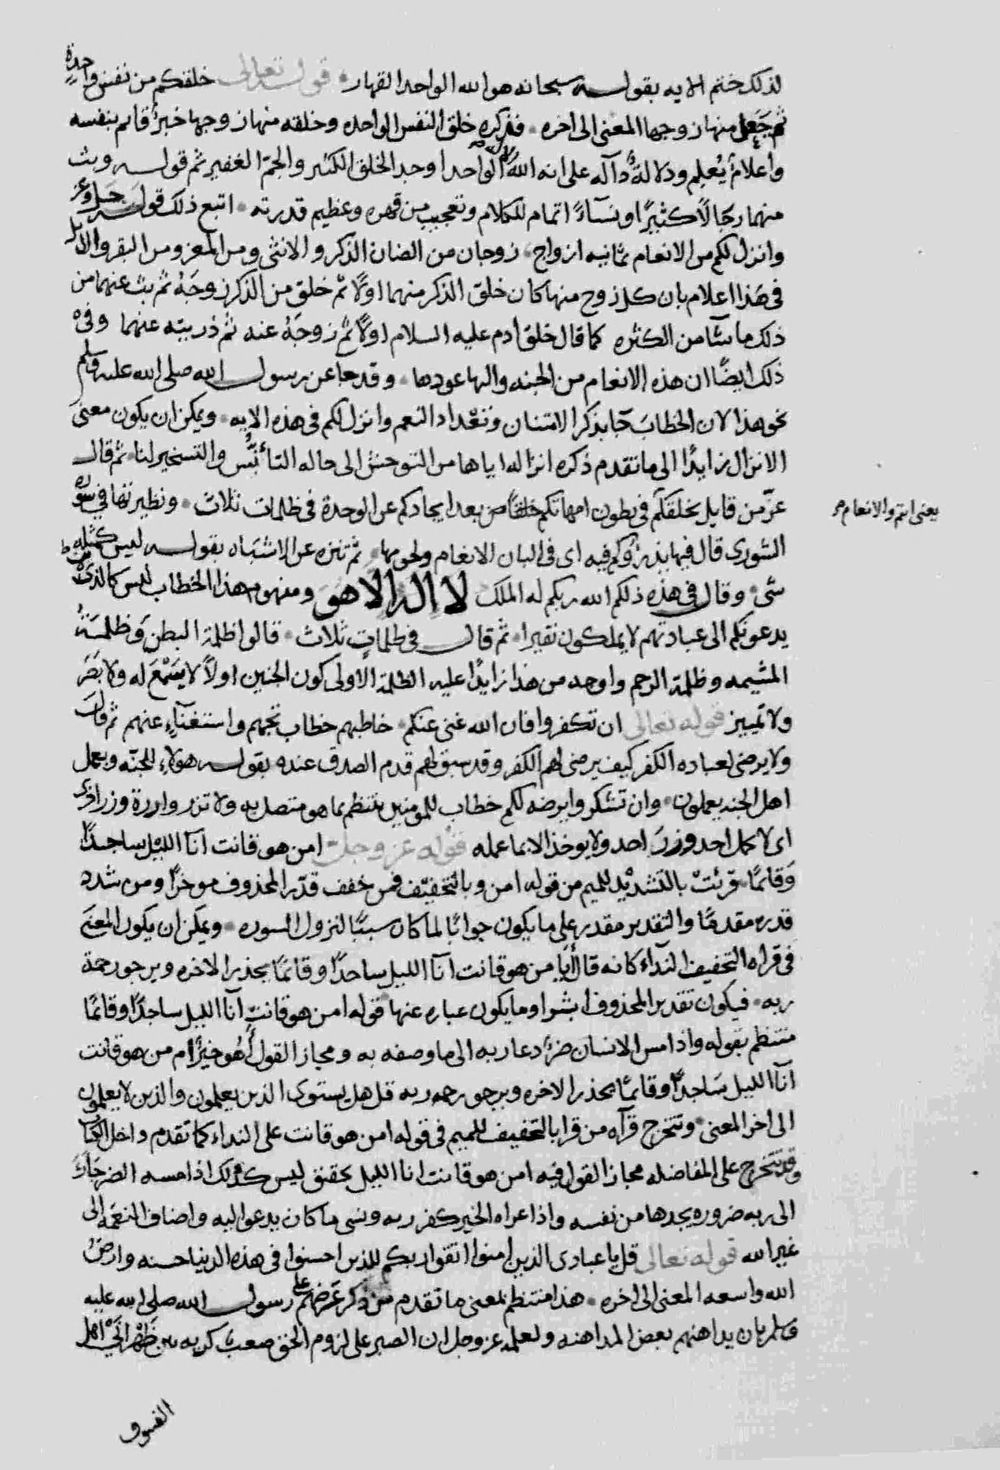 لذلك ختم الايه بقوله سبحانه هو الله الواحد القهار قوله تعالى خلقكم من نفس واحدة
ثم جعل منها زوجها المعنى الى اخره فذكره خلق النفس الواحده وخلقه منها زوجها خبرا قايم بنفسه
واعلام يعلم ودلالة دآله على انه الله الواحد اوجد الخلق الكثير والجم الغفير ثم قوله وبث
منهما رجالا كثيرا ونسآء اتمام للكلام وتعجيب من قهره وعظيم قدرته اتبع ذلك قوله جل وعز
وانزل لكم من الانعام ثمانيه ازواج زوجان من الضان الذكر والانثى ومن المعز ومن البقر والابل
فى هذا اعلام بان كل زوج منها كان خلق الذكر منهما اولا ثم خلق من الذكر زوجه ثم بث عنهما من
ذلك ماشآ من الكثره كما قال خلق ادم عليه السلام اولا ثم زوجه عنه ثم ذريته عنهما وفى
ذلك ايضا ان هذه الانعام من الجنه واليها عودها وقد جا عن رسول الله صلى الله عليه وسلم
نحو هذا لان الخطاب جآ بذكر الامتنان وتعداد النعم وانزل لكم فى هذه الايه ويمكن ان يكون معنى
الانزال زايدا الى ما تقدم ذكره انزاله اياها من التوحش الى حاله التأنس والتسخير لنا ثم قال
عز من قايل يخلقكم فى بطون امهاتكم خلقا من بعد ايجادكم عن الوحدة فى ظلمات ثلاث ونظيرتها فى سورة
يعنى انتم والانعام
الشورى قال فيها يذرؤكم فيه اى فى البان الانعام ولحومها ثم تنزه عن الاشتباه بقوله ليس كمثله
شى وقال فى هذه ذلكم الله ربكم له الملك لا اله الا هو ومفهوم هذا الخطاب ليس كالذين
يدعونكم الى عبادتهم لا يملكون نقيرا ثم قال فى ظلمات ثلاث قالوا ظلمة البطن وظلمة
المشيمه وظلمة الرحم واوجه من هذا زايدا عليه الظلمة الاولى كون الجنين اولا لا يسمع له ولا بصر
ولا تمييز قوله تعالى ان تكفروا فان الله غنى عنكم خاطبهم خطاب تجهم واستغنآء عنهم ثم قال
ولا يرضى لعباده الكفر كيف يرضى لهم الكفر وقد سبق لهم قدم الصدق عنده بقوله هولاء للجنه وبعمل
اهل الجنه يعملون وان تشكروا يرضه لكم خطاب للمومنين ينتظم بما هو متصل به ولا تزر وازرة وزر اخرى
اى لا يحمل احد وزر احد ولا يوخذ الا بما عمله قوله عز وجل امن هو قانت آنآ الليل ساجدا
وقائما قرئت بالتشديد للميم من قوله امن وبالتخفيف فمن خفف قدر المحذوف موخرا ومن شدد
قدره مقدما والتقدير مقدر على ما يكون جوابا لما كان سببا لنزول السوره ويمكن ان يكون المعنى
فى قراه التخفيف الندآء كانه قال ايا من هو قانت آنآ الليل ساجدا وقائما يحذر الاخره ويرجو رحمة
ربه فيكون تقدير المحذوف ابشر او ما يكون عباره عنها قوله امن هو قانت آنآ الليل ساجدا وقائما
منتظم بقوله واذا مس الانسان ضر دعا ربه الى ما وصفه به ومجاز القول أهو خير ام من هو قانت
آنآ الليل ساجدا وقائما يحذر الاخره ويرجو رحمه ربه قل هل يستوى الذين يعلمون والذين لا يعلمون
الى اخر المعنى وتتخرج قرآه من قرا بالتخفيف للميم فى قوله امن هو قانت على النداء كما تقدم داخل الكتاب
وقد تتخرج على المفاضله مجاز القول فيه امن هو قانت انا الليل بحقق ليس كذلك اذا مسه الضر جأر
الى ربه ضروره يجدها من نفسه واذا عراه الخير كفر ربه ونسى ما كان يدعو اليه واضاف النعمه الى
غير الله قوله تعالى قل يا عبادى الذين امنوا اتقوا ربكم للذين احسنوا فى هذه الدنيا حسنه وارض
الله واسعه المعنى الى اخره هذا منتظم بمعنى ما تقدم من ذكر عرضهم على رسول الله صلى الله عليه
وسلم بان يداهنهم بعض المداهنه ولعلمه عز وجل ان الصبر على لزوم الحق صعب كريه بين ظهرانى اهل
الفسوق